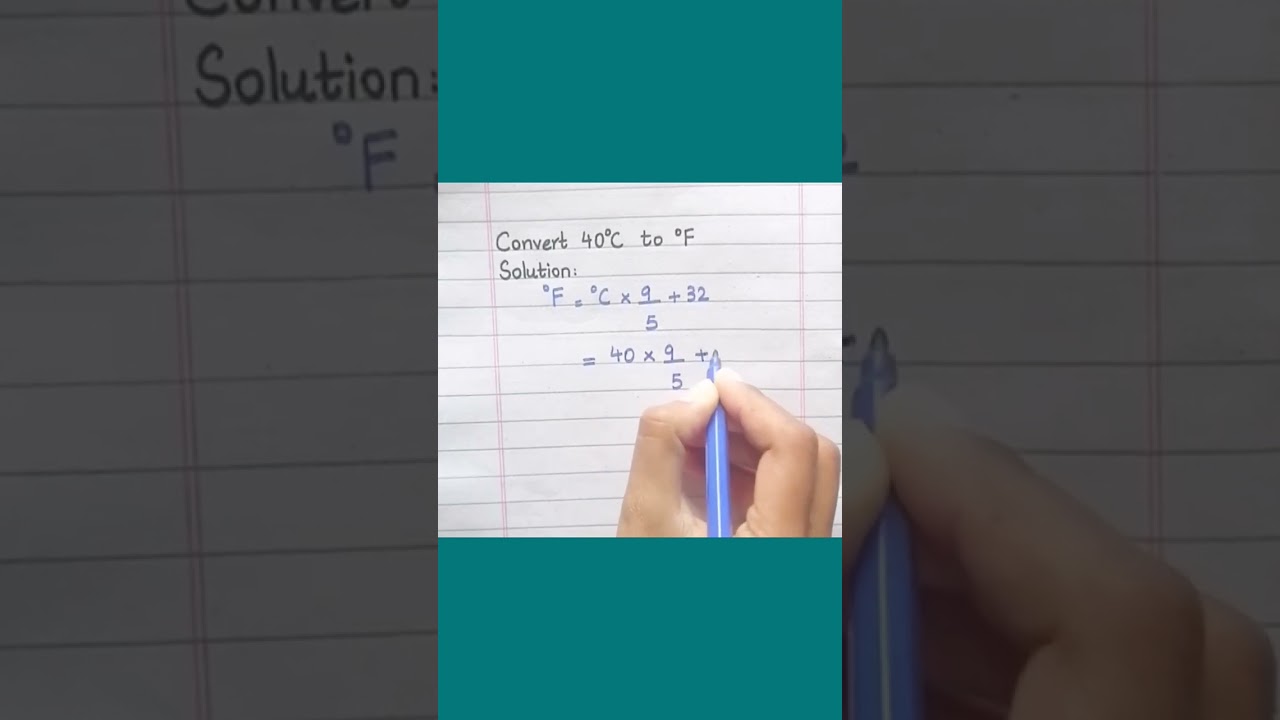 Convert 40°C to °F
Solution:
°F = °C × 9/5 + 32
= 40 × 9/5 +